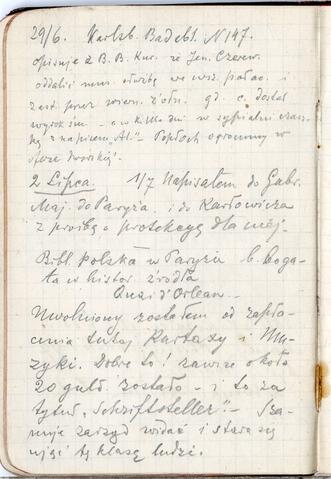 29/6. Karlsb. Badebl. N 147.
opisuje z B. B. Kur. że Jen. Czerew.
oddalić
zast. przez
wyrok śm. – a w kilka dni w sypialni
z napisem „Al." – Popłoch ogromny w
sferze dworskiej.
2 Lipca. 1/7 Napisałem do Gabr.
Maj. do Paryża i do Karłowicza
z prośbą o protekcyę dla niéj.
Bibl. Polska w Paryżu b. boga-
ta w histor. źródła
Quai d'Orlean
Uwolniony zostałem od zapła-
cenia tutaj Kartaxy i Mu-
zyki. Dobre to! zawsze około
20 guld. zostało – i to za
tytuł „Schriftsteller". – Sza-
nuje zarząd widać i stara się
ująć tę klasę ludzi.